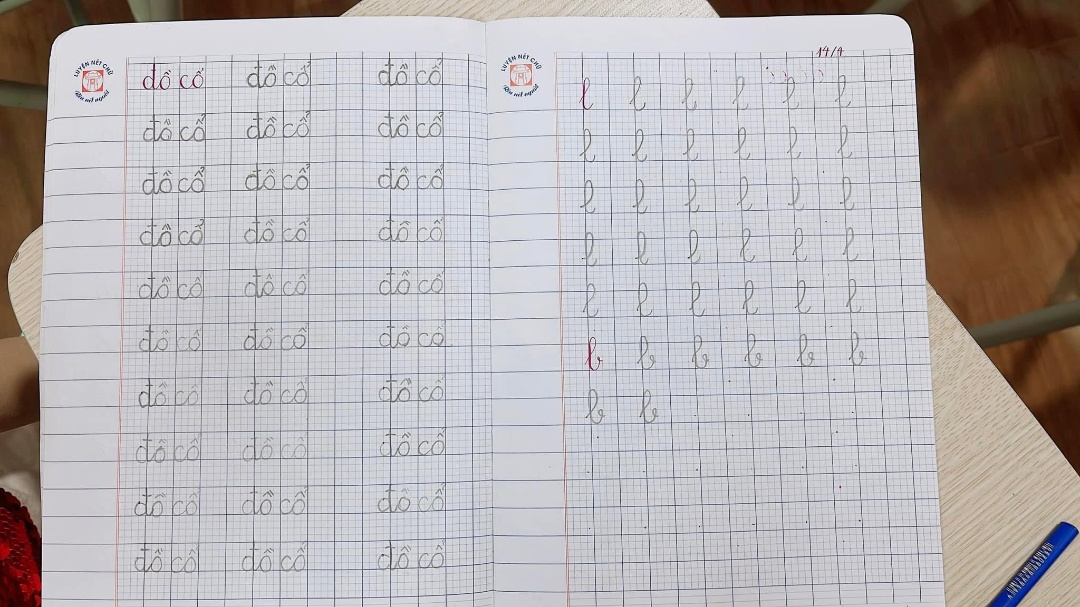 LUYỆN NÉT CHỮ
Rèn nết người
đồ cổ đồ cổ đồ cổ
đồ cổ đồ cổ đồ cổ
đồ cổ đồ cổ đồ cổ
đồ cổ đồ cổ đồ cổ
đồ cổ đồ cổ đồ cổ
đồ cổ đồ cổ đồ cổ
đồ cổ đồ cổ đồ cổ
đồ cổ đồ cổ đồ cổ
đồ cổ đồ cổ đồ cổ
đồ cổ đồ cổ đồ cổ
LUYỆN NÉT CHỮ
Rèn nết người
l l l l l l
l l l l l l
l l l l l l
l l l l l l
l l l l l l
b b b b b b
b b